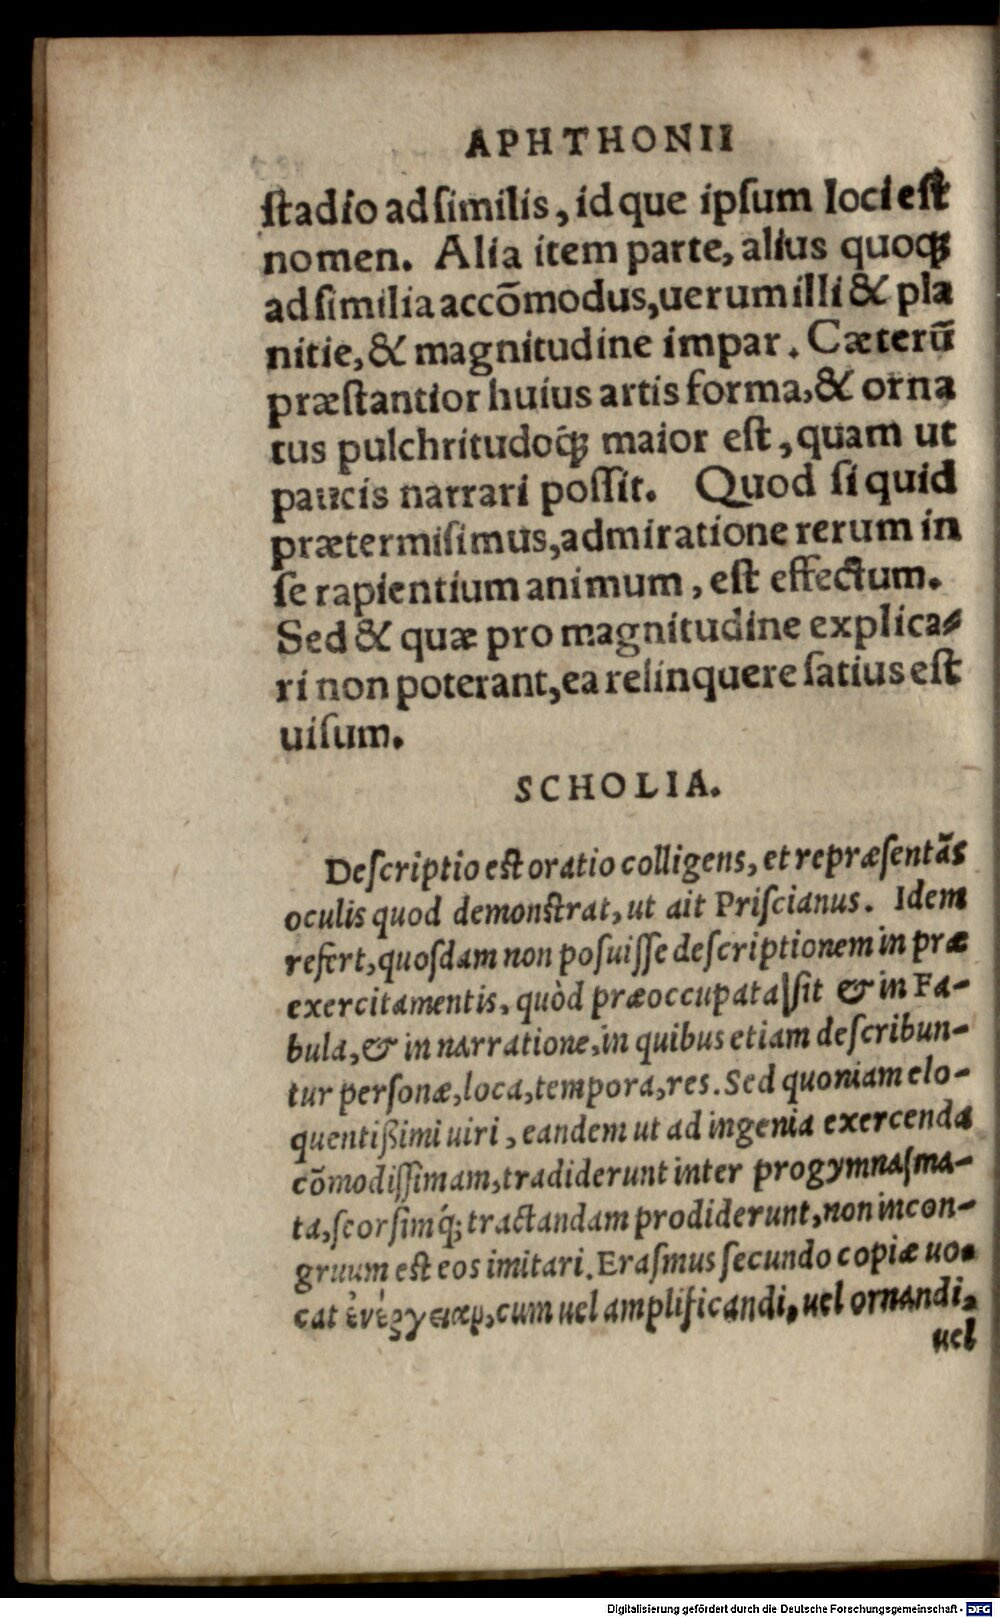 APHTHONII
ſtadio adſimilis, id que ipſum loci eſt
nomen. Alia item parte, alius quoqꝫ
adſimilia accõmodus, uerum illi & pla
nitie, & magnitudine impar. Cæterũ
præſtantior huius artis forma, & orna
tus pulchritudoq́ꝫ maior eſt, quam ut
paucis narrari poſſit. Quod ſi quid
prætermiſimus, admiratione rerum in
ſe rapientium animum, eſt effectum.
Sed & quæ pro magnitudine explica-
ri non poterant, ea relinquere ſatius eſt
uiſum.
SCHOLIA.
Deſcriptio eſt oratio colligens, et repræſentãs
oculis quod demonſtrat, ut ait Priſcianus. Idem
refert, quoſdam non poſuiſſe deſcriptionem in præ
exercitamentis, quòd præoccupata ſit & in Fa-
bula, & in narratione, in quibus etiam deſcribun-
tur perſonæ, loca, tempora, res. Sed quoniam elo-
quentißimi uiri, eandem ut ad ingenia exercenda
cõmodiſſimam, tradiderunt inter progymnaſma-
ta, ſeorſimq́; tractandam prodiderunt, non incon-
gruum eſt eos imitari. Eraſmus ſecundo copiæ uo-
cat ἐνέργειαν, cum uel amplificandi, uel ornandi,
uel
Digitalisierung gefördert durch die Deutsche Forschungsgemeinschaft - DFG